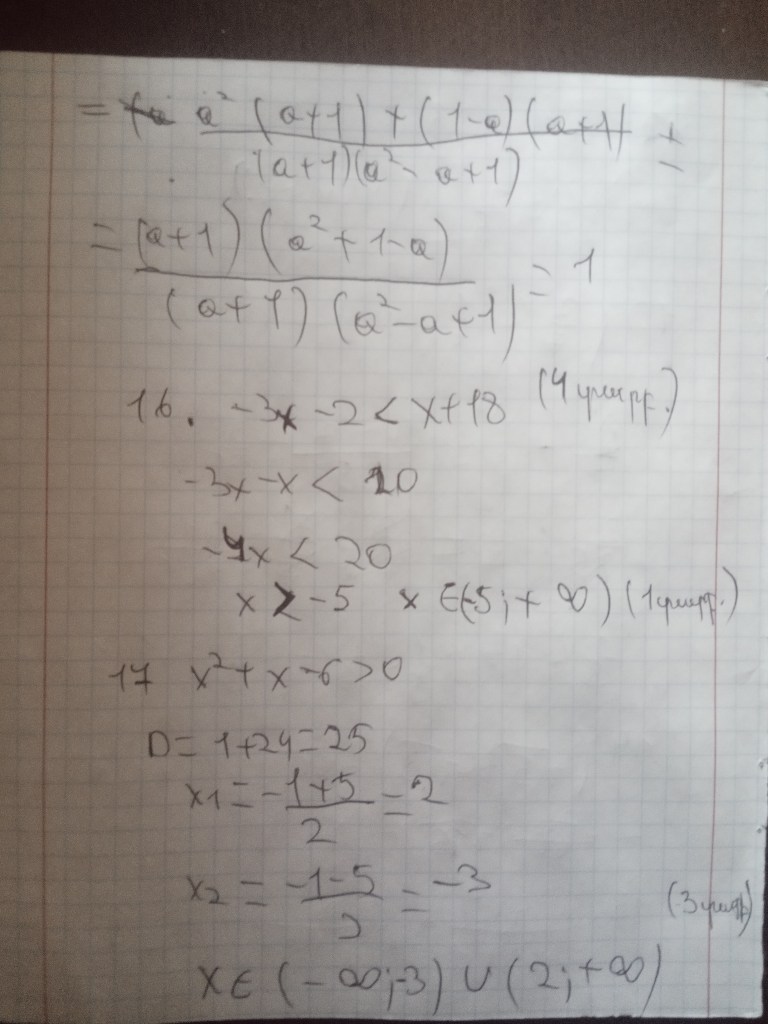 = a² (a+1) + (1-a)(a+1) / (a+1)(a² - a+1) =
= (a+1)(a²+1-a) / (a+1)(a²-a+1) = 1
16. -3x -2 < x+18
-3x -x < 20
-4x < 20
x > -5 x ∈(-5;+∞)
17 x²+x-6>0
D= 1+24=25
x1 = -1+5 / 2 = 2
x2 = -1-5 / 2 = -3
x∈ (-∞;-3) ∪ (2;+∞)